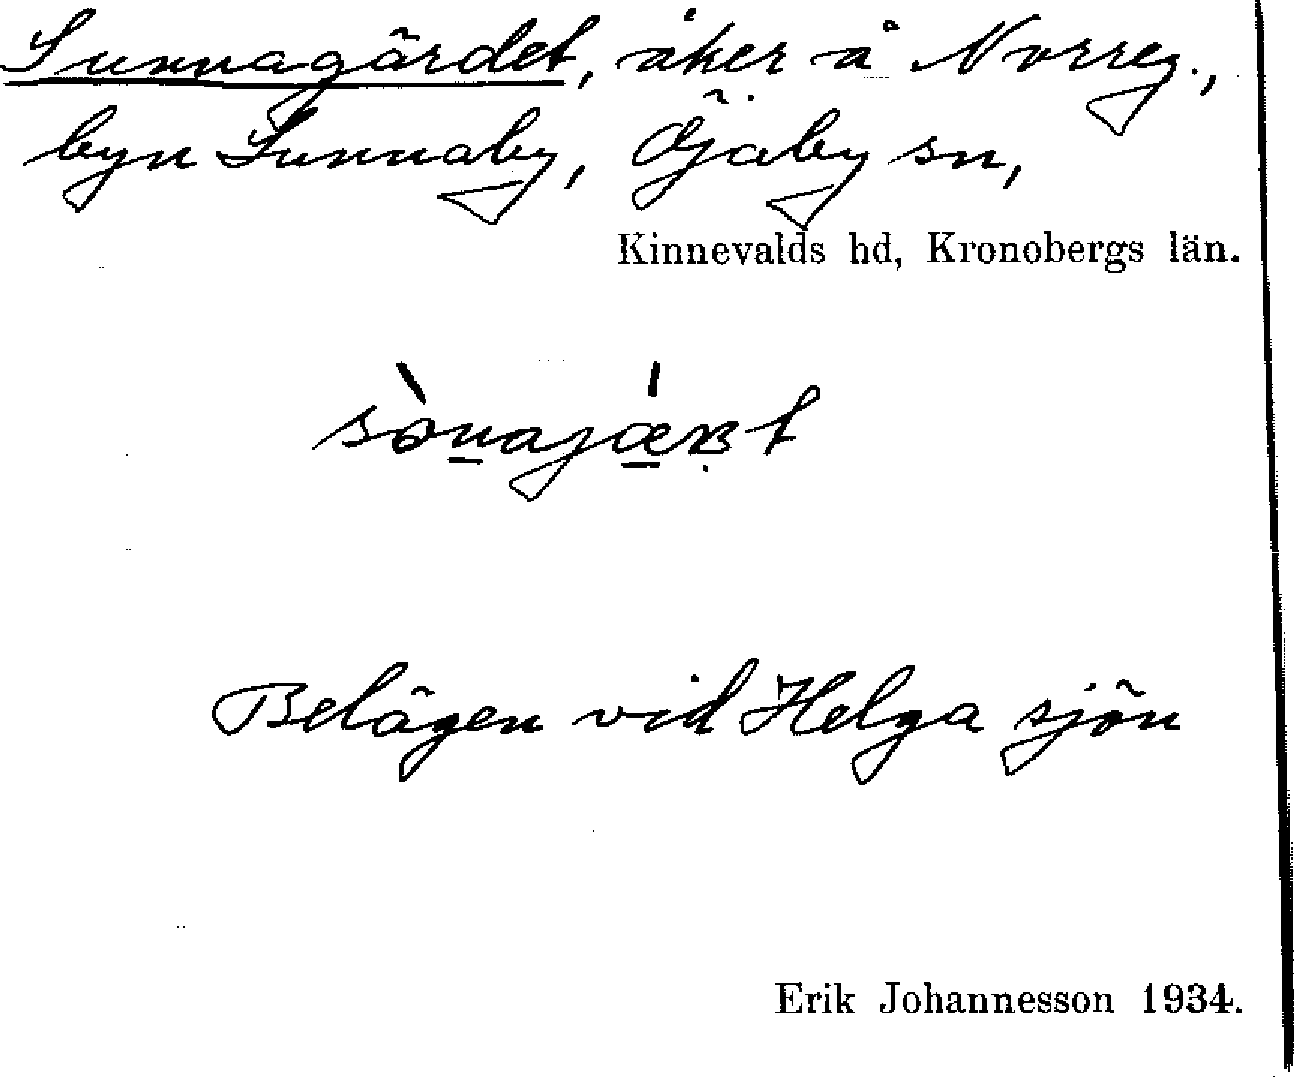 Sunnagärdet, åker å Norreg.,
byn Sunnaby, Öjaby sn,
Kinnevalds hd, Kronobergs län.
Belägen vid Helga sjön
Erik Johannesson 1934.